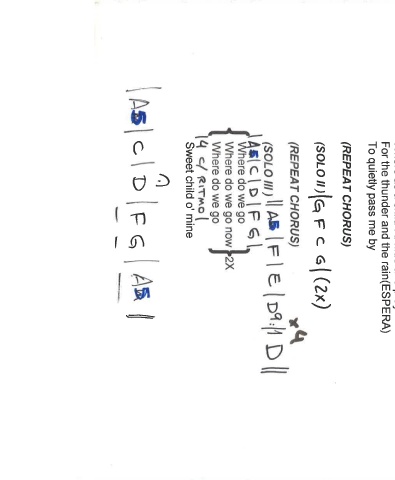 For the thunder and the rain(ESPERA)
To quietly pass me by
(REPEAT CHORUS)
(SOLO II) | G F C G | (2x)
(REPEAT CHORUS)
(SOLO III) || A5 | F | E | D9 :| D || x4
| A5 | C | D | F G |
Where do we go
Where do we go now 2X
Where do we go
| 4 C/ RITMO |
Sweet child o' mine
| A5 | C | D | F G | A5 ||